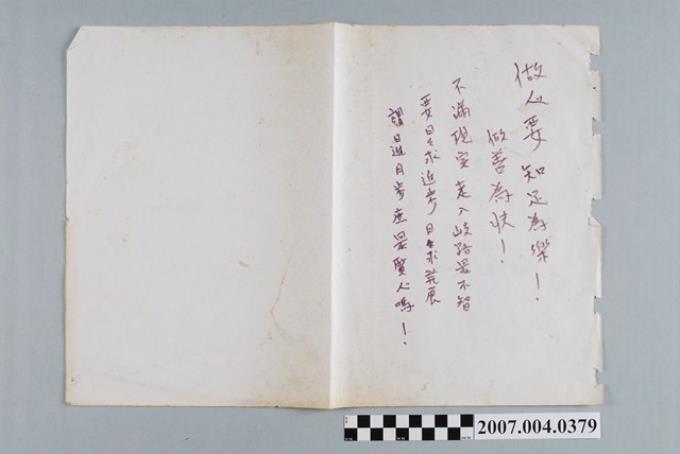 做人要知足為樂！
做善為快！
不滿現实走入歧路是不智
要日日求進步日日求發展
謂日進月步座是賢人嗎！
2007.004.0379